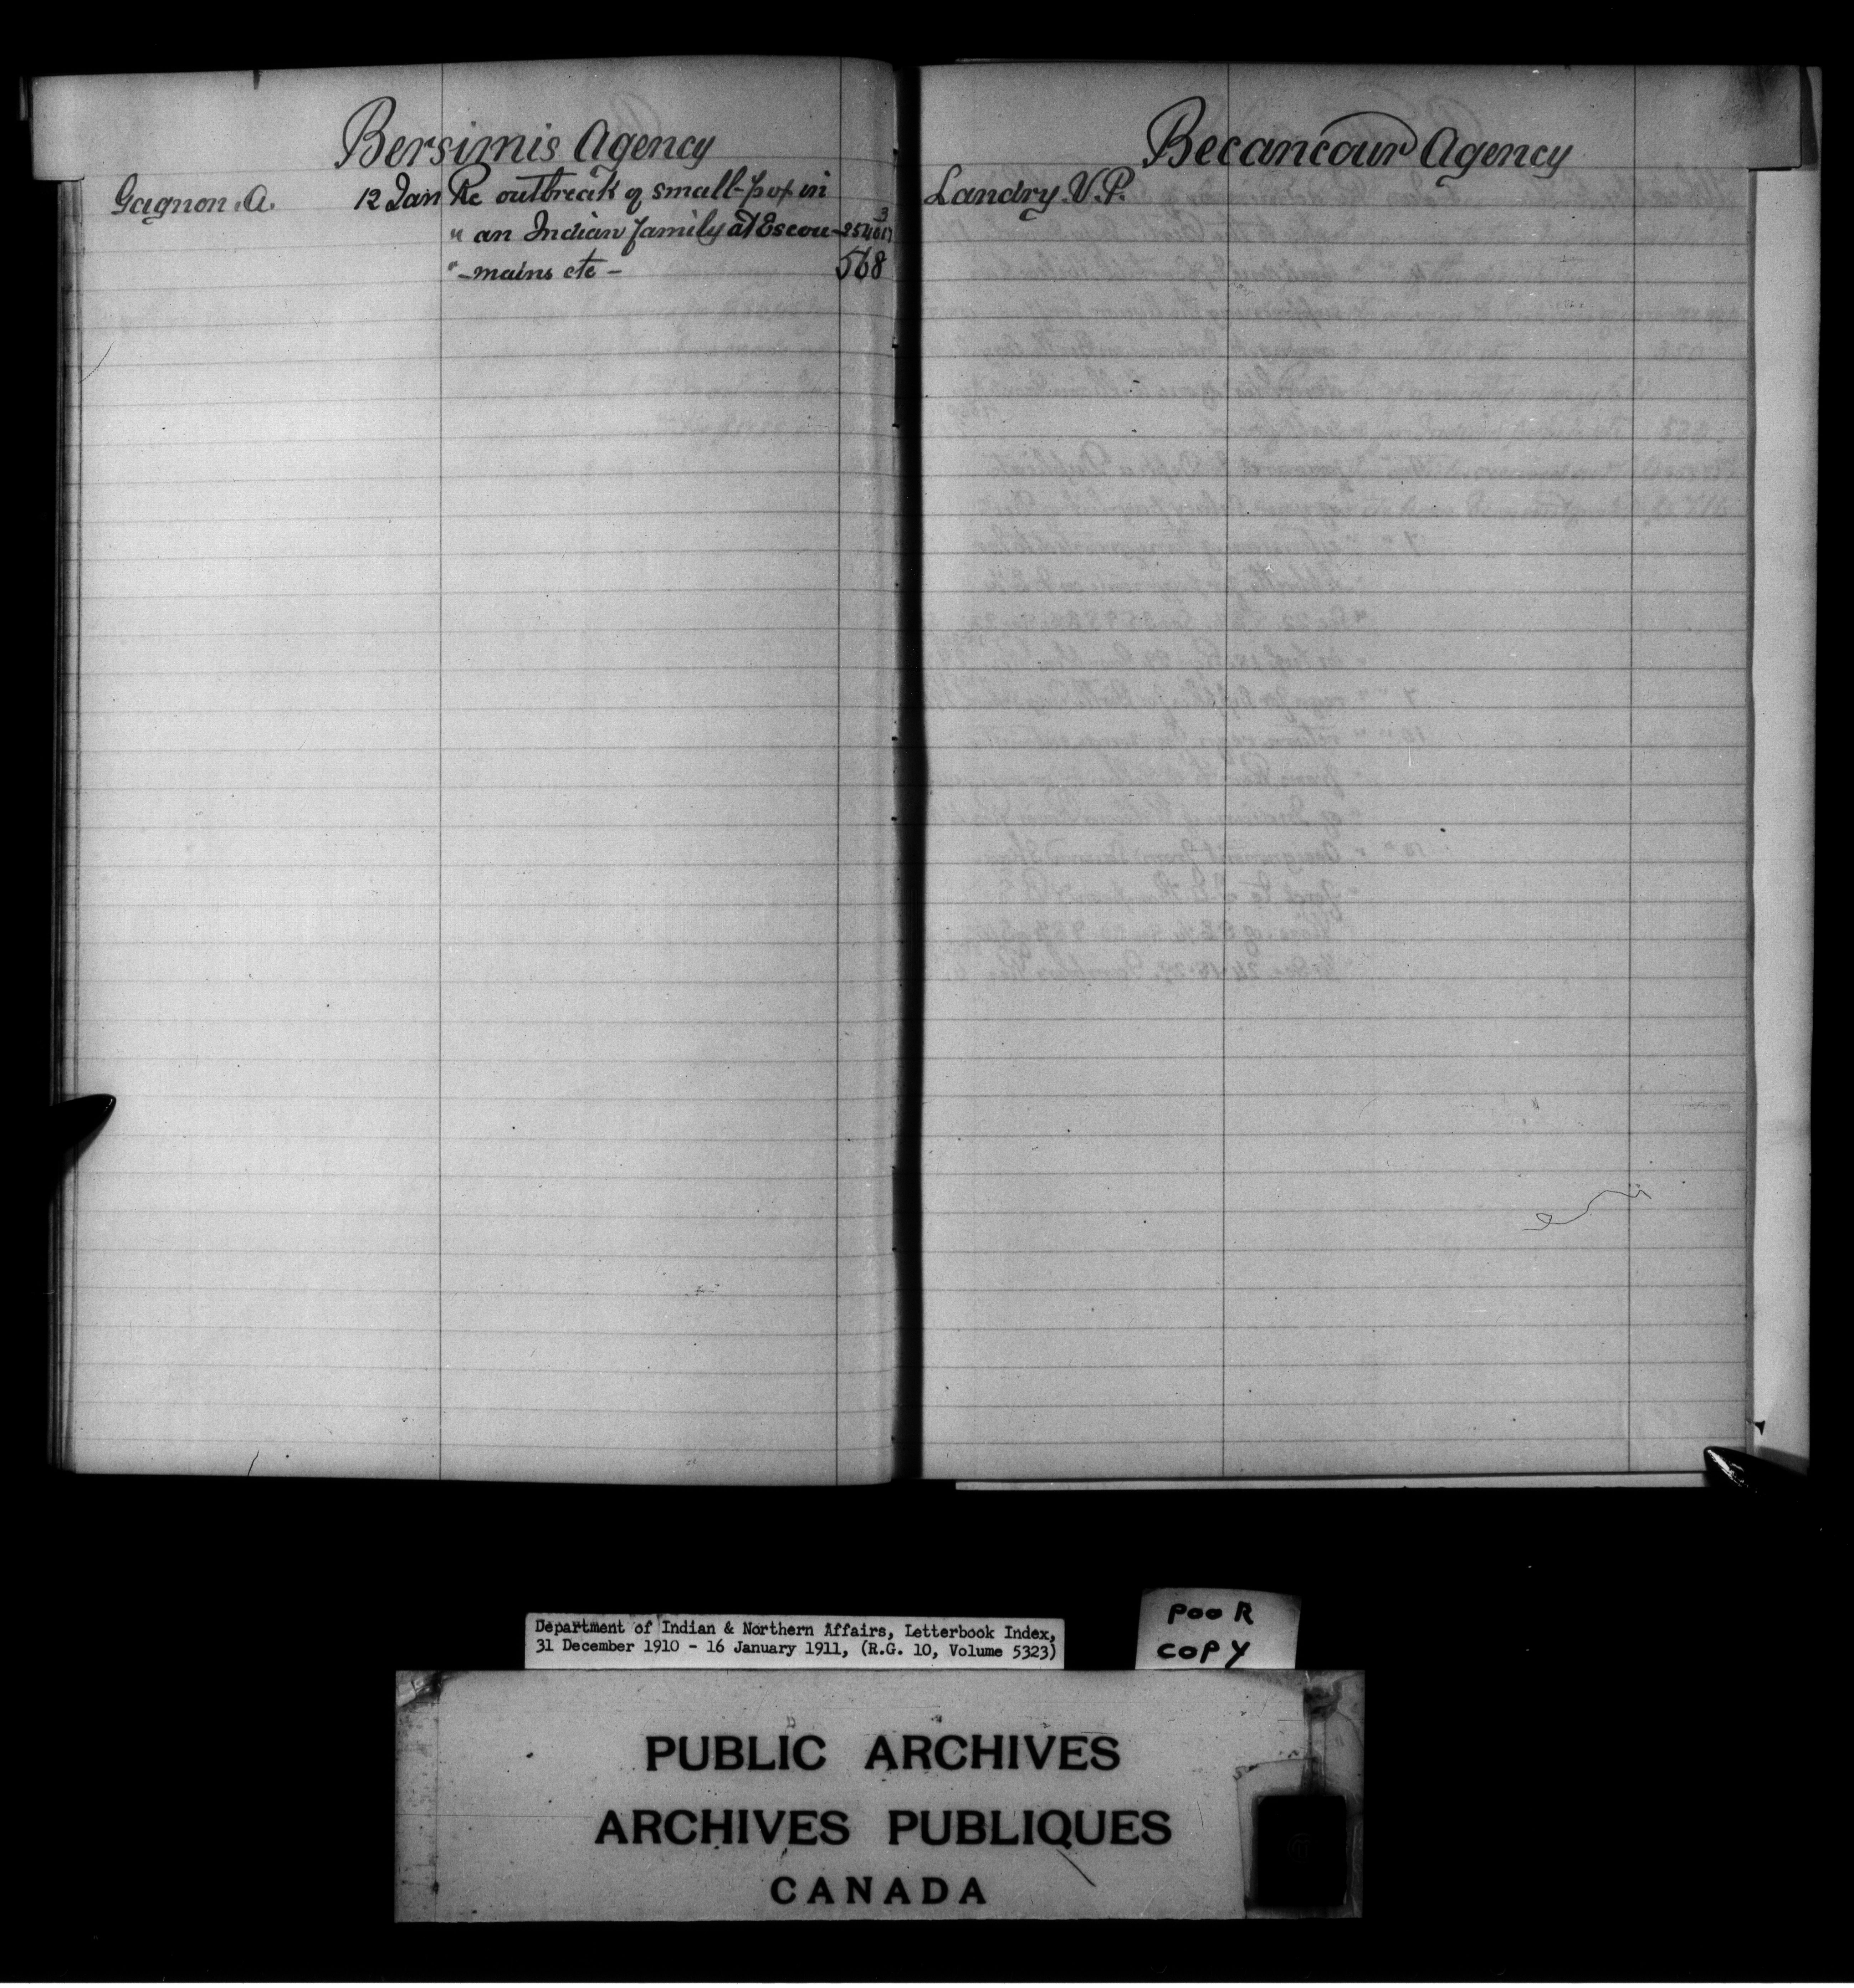 Bersimis Agency
Gagnon. A. 12 Jan Re outbreak of small-pox in
" an Indian family at Escou-
" -mains etc - 568
Becancour Agency
Landry. V. P.
Department of Indian & Northern Affairs, Letterbook Index,
31 December 1910 - 16 January 1911, (R.G. 10, Volume 5323)
POOR
COPY
PUBLIC ARCHIVES
ARCHIVES PUBLIQUES
CANADA